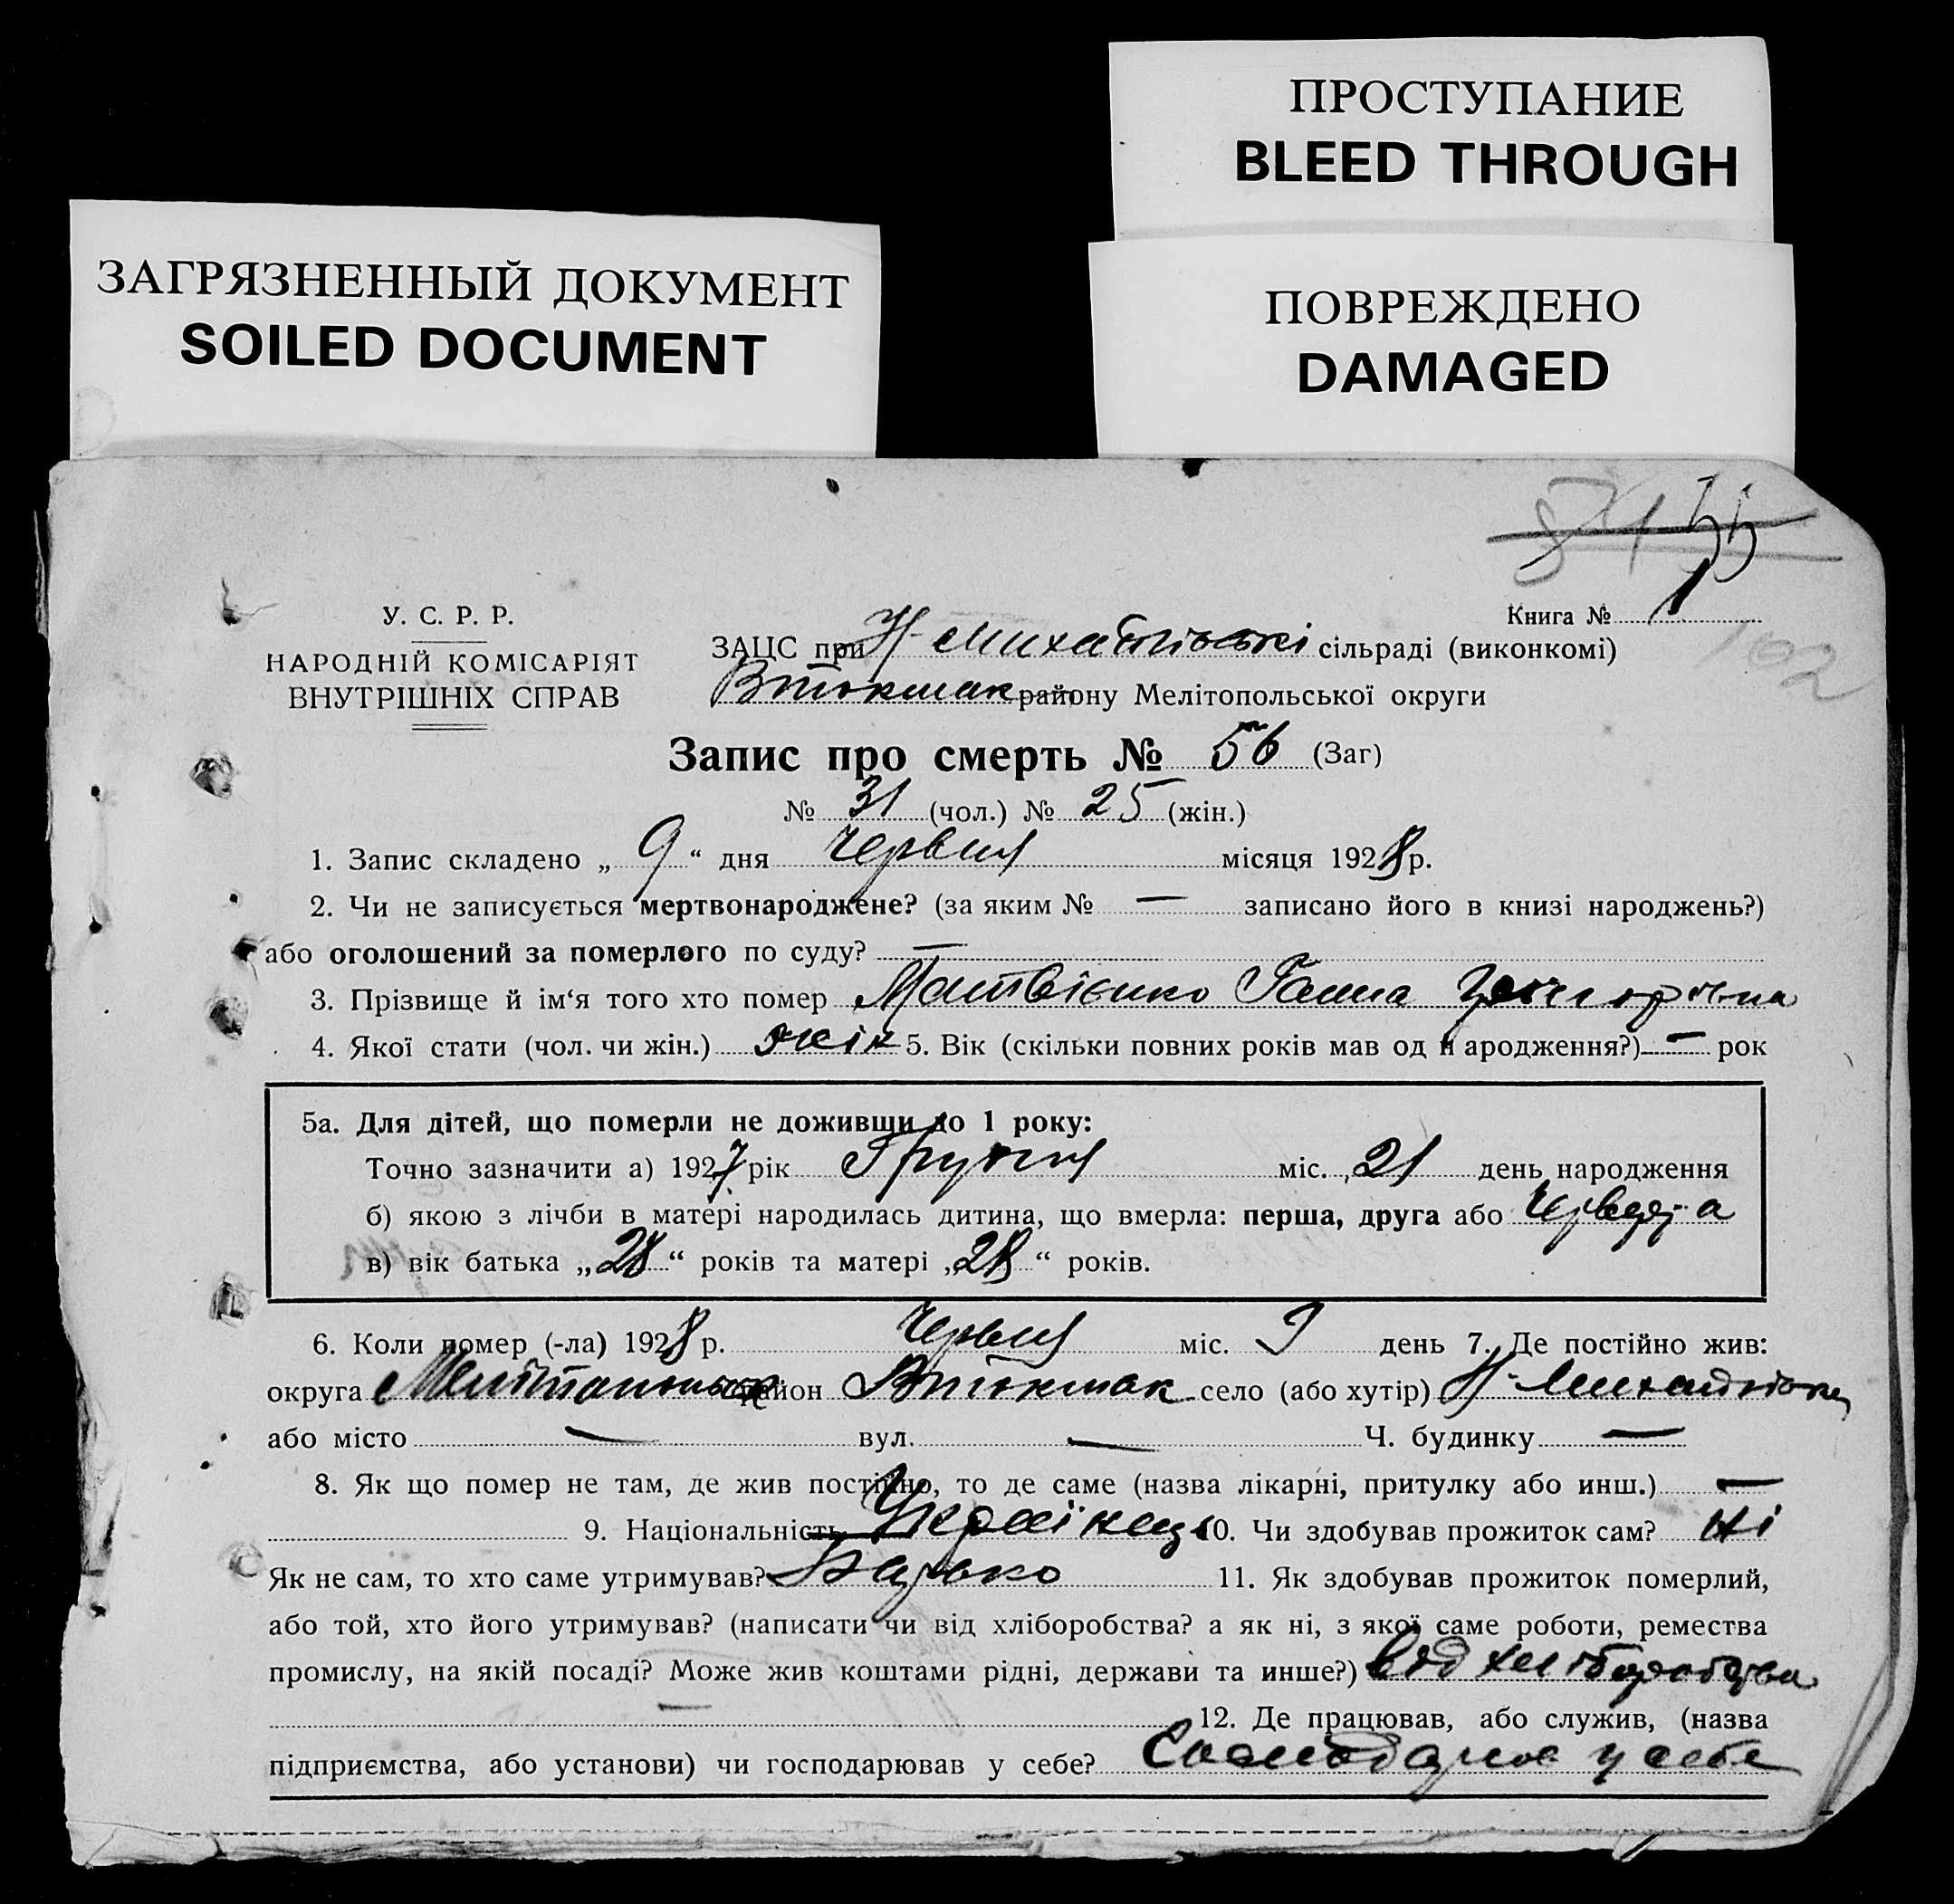 ПРОСТУПАНИЕ
BLEED THROUGH
ЗАГРЯЗНЕННЫЙ ДОКУМЕНТ
SOILED DOCUMENT
ПОВРЕЖДЕНО
DAMAGED
55
Книга № 1
102
У. С. Р. Р.
НАРОДНІЙ КОМІСАРІЯТ
ВНУТРІШНІХ СПРАВ
ЗАЦС при Н-Михайлівські сільраді (виконкомі)
Втокмак району Мелітопольської округи
Запис про смерть № 56 (Заг)
№ 31 (чол.) № 25 (жін.)
1. Запис складено „ 9 “ дня Червня місяця 1928 р.
2. Чи не записується мертвонароджене? (за яким № — записано його в книзі народжень?)
або оголошений за померлого по суду? —
3. Прізвище й ім‘я того хто помер Матвієнко Ганна
4. Якої стати (чол. чи жін.) жін 5. Вік (скільки повних років мав од н ародження?) — рок
5а. Для дітей, що померли не доживши до 1 року:
Точно зазначити а) 1927 рік Грудня міс. 21 день народження
б) якою з лічби в матері народилась дитина, що вмерла: перша, друга або
в) вік батька „28“ років та матері „28“ років.
6. Коли помер (-ла) 1928 р. Червня міс. 9 день 7. Де постійно жив:
округа район Втокмак село (або хутір) Н-Михайлівка
або місто — вул. — Ч. будинку —
8. Як що помер не там, де жив постійно, то де саме (назва лікарні, притулку або инш.) —
9. Національність Українець 10. Чи здобував прожиток сам? Ні
Як не сам, то хто саме утримував? Батько 11. Як здобував прожиток померлий,
або той, хто його утримував? (написати чи від хліборобства? а як ні, з якої саме роботи, ремества
промислу, на якій посаді? Може жив коштами рідні, держави та инше?) від хліборобства
— 12. Де працював, або служив, (назва
підприємства, або установи) чи господарював у себе? у себе